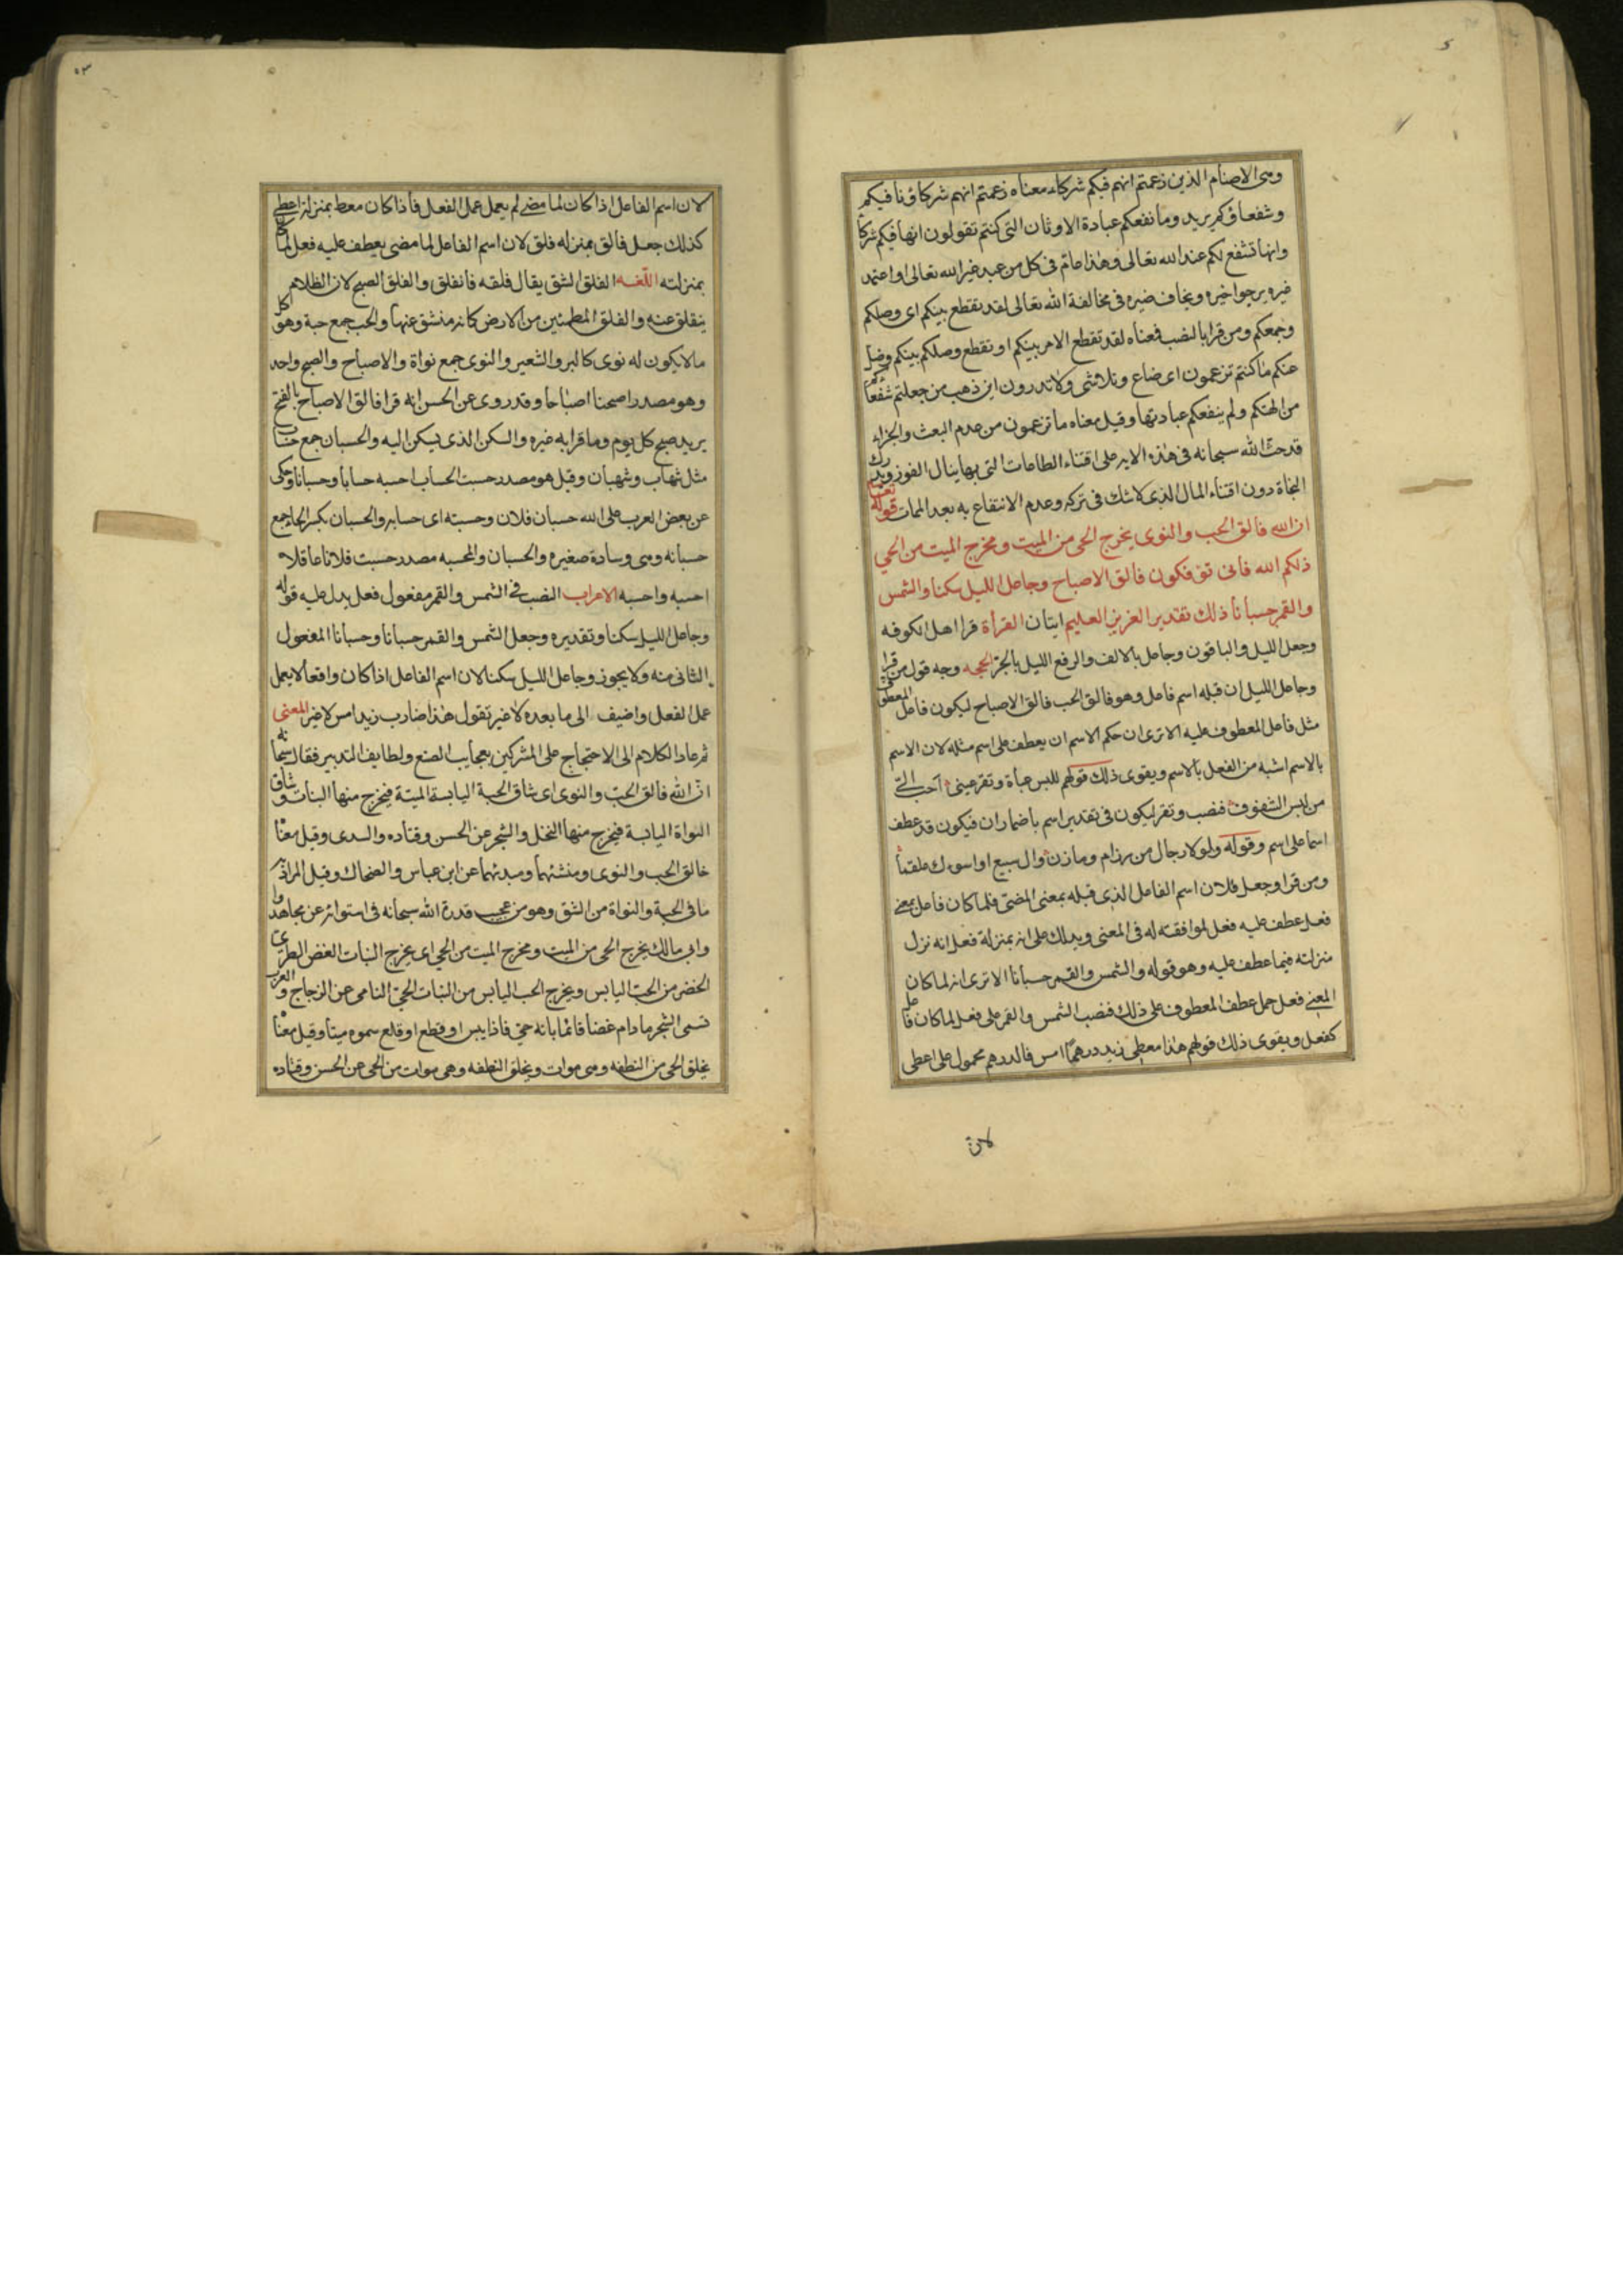 وهى الاصنام الذين زعمتم انهم فيكم شركاء معناه زعمتم انهم شركاؤنا فيكم
وشفعاؤكم يريد وما نفعكم عبادة الاوثان التى كنتم تقولون انها فيكم شركا
وانها تشفع لكم عند الله تعالى وهذا عام فى كل من عبد غير الله تعالى او اعتمد
غيره يرجوا خيره ويخاف ضيره فى مخالفة الله تعالى لقد تقطع بينكم اى وصلكم
وجمعكم ومن قرا بالنصب فمعناه لقد تقطع الامر بينكم او تقطع وصلكم بينكم وضل
عنكم ما كنتم تزعمون اى ضاع وتلاشى ولا تدرون اين ذهب من جعلتم شفعاءكم
من الهتكم ولم ينفعكم عبادتها وقيل معناه ما تزعمون من عدم البعث والجزاء
قد حث الله سبحانه فى هذه الايه على اقتناء الطاعات التى بها ينال الفوز ويدرك
النجاة دون اقتناء المال الذى لا شك فى تركه وعدم الانتفاع به بعد الممات قوله تعالى
ان الله فالق الحب والنوى يخرج الحى من الميت ومخرج الميت من الحي
ذلكم الله فانى تؤفكون فالق الاصباح وجاعل الليل سكنا والشمس
والقمر حسبانا ذلك تقدير العزيز العليم ايتان القرأة قرا اهل الكوفه
وجعل الليل والباقون وجاعل بالالف والرفع الليل بالجر الحجه وجه قول من قرا
وجاعل الليل ان قبله اسم فاعل وهو فالق الحب فالق الاصباح ليكون فاعل المعطوف
مثل فاعل المعطوف عليه الا ترى ان حكم الاسم ان يعطف على اسم مثله لان الاسم
بالاسم اشبه من الفعل بالاسم ويقوى ذلك قولهم للبس عبأة وتقر عينى احب الىّ
من لبس الشفوف فنصب وتقر ليكون فى تقدير اسم باضمار ان فيكون قد عطف
اسما على اسم وقوله ولولا رجال من رزام ومازن وال سبيع او اسوءك علقما
ومن قرا وجعل فلان اسم الفاعل الذى قبله بمعنى المضى فلما كان فاعل بمعنى
فعل عطف عليه فعل لموافقته له فى المعنى ويدلك على انه بمنزلة فعل انه نزل
منزلته فيما عطف عليه وهو قوله والشمس والقمر حسبانا الا ترى انه لما كان
المعنى فعل حمل عطف المعطوف على ذلك فنصب الشمس والقمر على فعل لما كان فاعل
كفعل ويقوى ذلك قولهم هذا معطى زيد درهمًا امس فالدرهم محمول على اعطى
لان
لان اسم الفاعل اذا كان لما مضى لم يعمل عمل الفعل فاذا كان معط بمنزلة اعطى
كذلك جعل فالق بمنزله فلق لان اسم الفاعل لما مضى يعطف عليه فعل لما كان
بمنزلته اللغه الفلق الشق يقال فلقه فانفلق والفلق الصبح لان الظلام
ينفلق عنه والفلق المطمئن من الارض كانه منشق عنها والحب جمع حبة وهو كل
ما لا يكون له نوى كالبر والشعير والنوى جمع نواة والاصباح والصبح واحد
وهو مصدر اصبحنا اصباحا وقد روى عن الحسن انه قرا فالق الاصباح بالفتح
يريد صبح كل يوم وما قرا به غيره والسكن الذى يسكن اليه والحسبان جمع حساب
مثل شهاب وشهبان وقيل هو مصدر حسبت الحساب احسبه حسابا وحسبانا وحكى
عن بعض العرب على الله حسبان فلان وحسبته اى حسابه والحسبان بكسر الحاء جمع
حسبانه وهى وسادة صغيره والحسبان والمحسبه مصدر حسبت فلانا عاقلا
احسبه واحسبه الاعراب النصب فى الشمس والقمر مفعول فعل يدل عليه قوله
وجاعل الليل سكنا وتقديره وجعل الشمس والقمر حسبانا وحسبانا المفعول
الثانى منه ولا يجوز وجاعل الليل سكنا لان اسم الفاعل اذا كان واقعا لا يعمل
عمل الفعل واضيف الى ما بعده لا غير تقول هذا ضارب زيد امس لا غير المعنى
ثم عاد الكلام الى الاحتجاج على المشركين بعجايب الصنع ولطايف التدبير فقال سبحانه
انّ الله فالق الحبّ والنوى اى شاق الحبة اليابسة الميتة فيخرج منها النبات وشاق
النواة اليابسة فيخرج منها النخل والشجر عن الحسن وقتاده والسدى وقيل معناه
خالق الحب والنوى ومنشئهما ومبدئهما عن ابن عباس والضحاك وقيل المراد به
ما فى الحبة والنواة من الشق وهو من عجيب قدرة الله سبحانه فى استوائه عن مجاهد
وابى مالك يخرج الحى من الميت ومخرج الميت من الحي اى يخرج النبات الغض الطرى
الخضر من الحبّ اليابس ويخرج الحب اليابس من النبات الحيّ النامى عن الزجاج والعرب
تسمى الشجر ما دام غضا قائما بانه حيّ فاذا يبس او قطع او قلع سموه ميتا وقيل معناه
يخلق الحى من النطفه وهى موات ويخلق النطفه وهى موات من الحى عن الحسن وقتاده